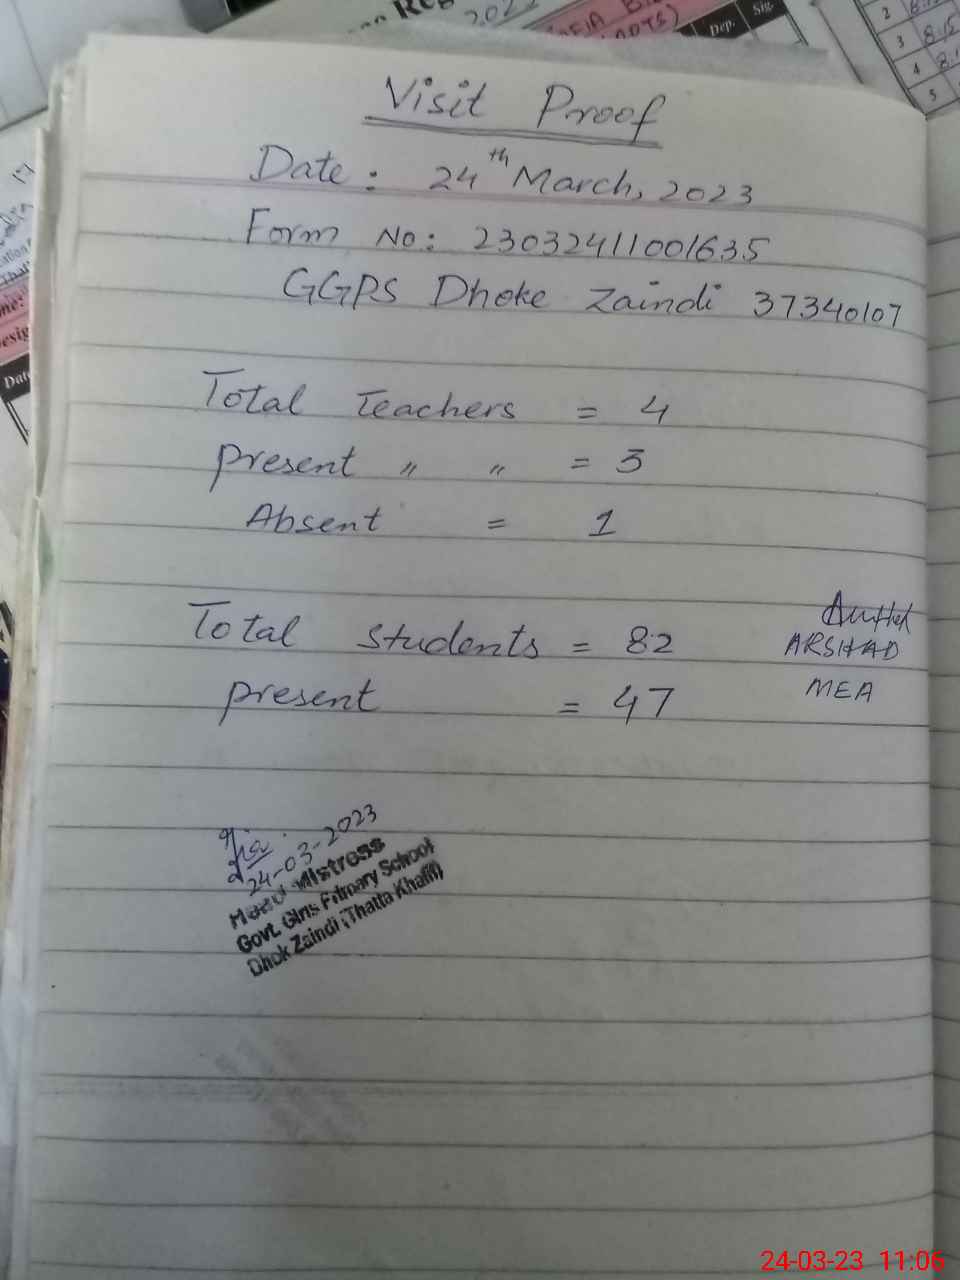 Visit Proof
Date: 24th March, 2023
Form No: 23032411001635
GGPS Dhoke Zaindi 37340107
Total Teachers = 4
Present " " = 3
Absent = 1
Total Students = 82
ARSHAD
Present = 47
MEA
24-03-2023
Head Mistress
Govt. Girls Primary School
Dhok Zaindi (Thatta Khalil)
Dep.
Sig.
2
3
4
5
2023
24-03-23 11:06